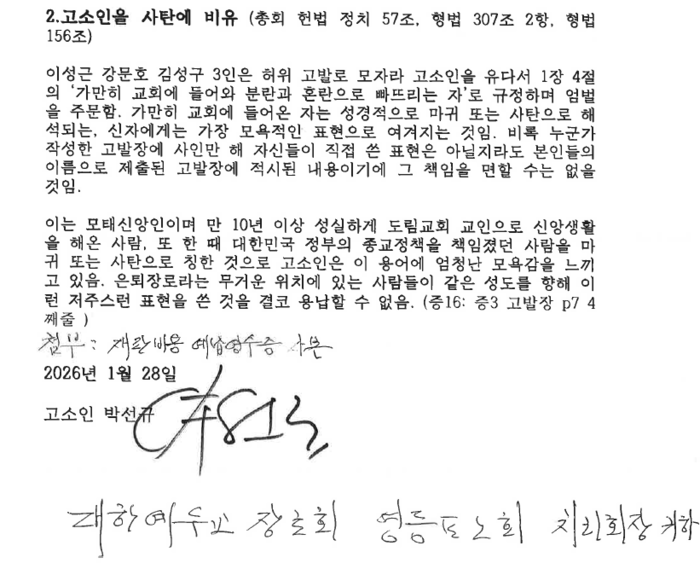 2.고소인을 사탄에 비유 (총회 헌법 정치 57조, 형법 307조 2항, 형법
156조)
이성근 강문호 김성구 3인은 허위 고발로 모자라 고소인을 유다서 1장 4절
의 '가만히 교회에 들어와 분란과 혼란으로 빠뜨리는 자'로 규정하며 엄벌
을 주문함. 가만히 교회에 들어온 자는 성경적으로 마귀 또는 사탄으로 해
석되는, 신자에게는 가장 모욕적인 표현으로 여겨지는 것임. 비록 누군가
작성한 고발장에 사인만 해 자신들이 직접 쓴 표현은 아닐지라도 본인들의
이름으로 제출된 고발장에 적시된 내용이기에 그 책임을 면할 수는 없을
것임.
이는 모태신앙인이며 만 10년 이상 성실하게 도림교회 교인으로 신앙생활
을 해온 사람, 또 한 때 대한민국 정부의 종교정책을 책임졌던 사람을 마
귀 또는 사탄으로 칭한 것으로 고소인은 이 용어에 엄청난 모욕감을 느끼
고 있음. 은퇴장로라는 무거운 위치에 있는 사람들이 같은 성도를 향해 이
런 저주스런 표현을 쓴 것을 결코 용납할 수 없음. (증16: 증3 고발장 p7 4
째줄 )
첨부: 재판비용 예납영수증 사본
2026년 1월 28일
고소인 박선규
대한예수교 장로회 영등포노회 치리회장 귀하